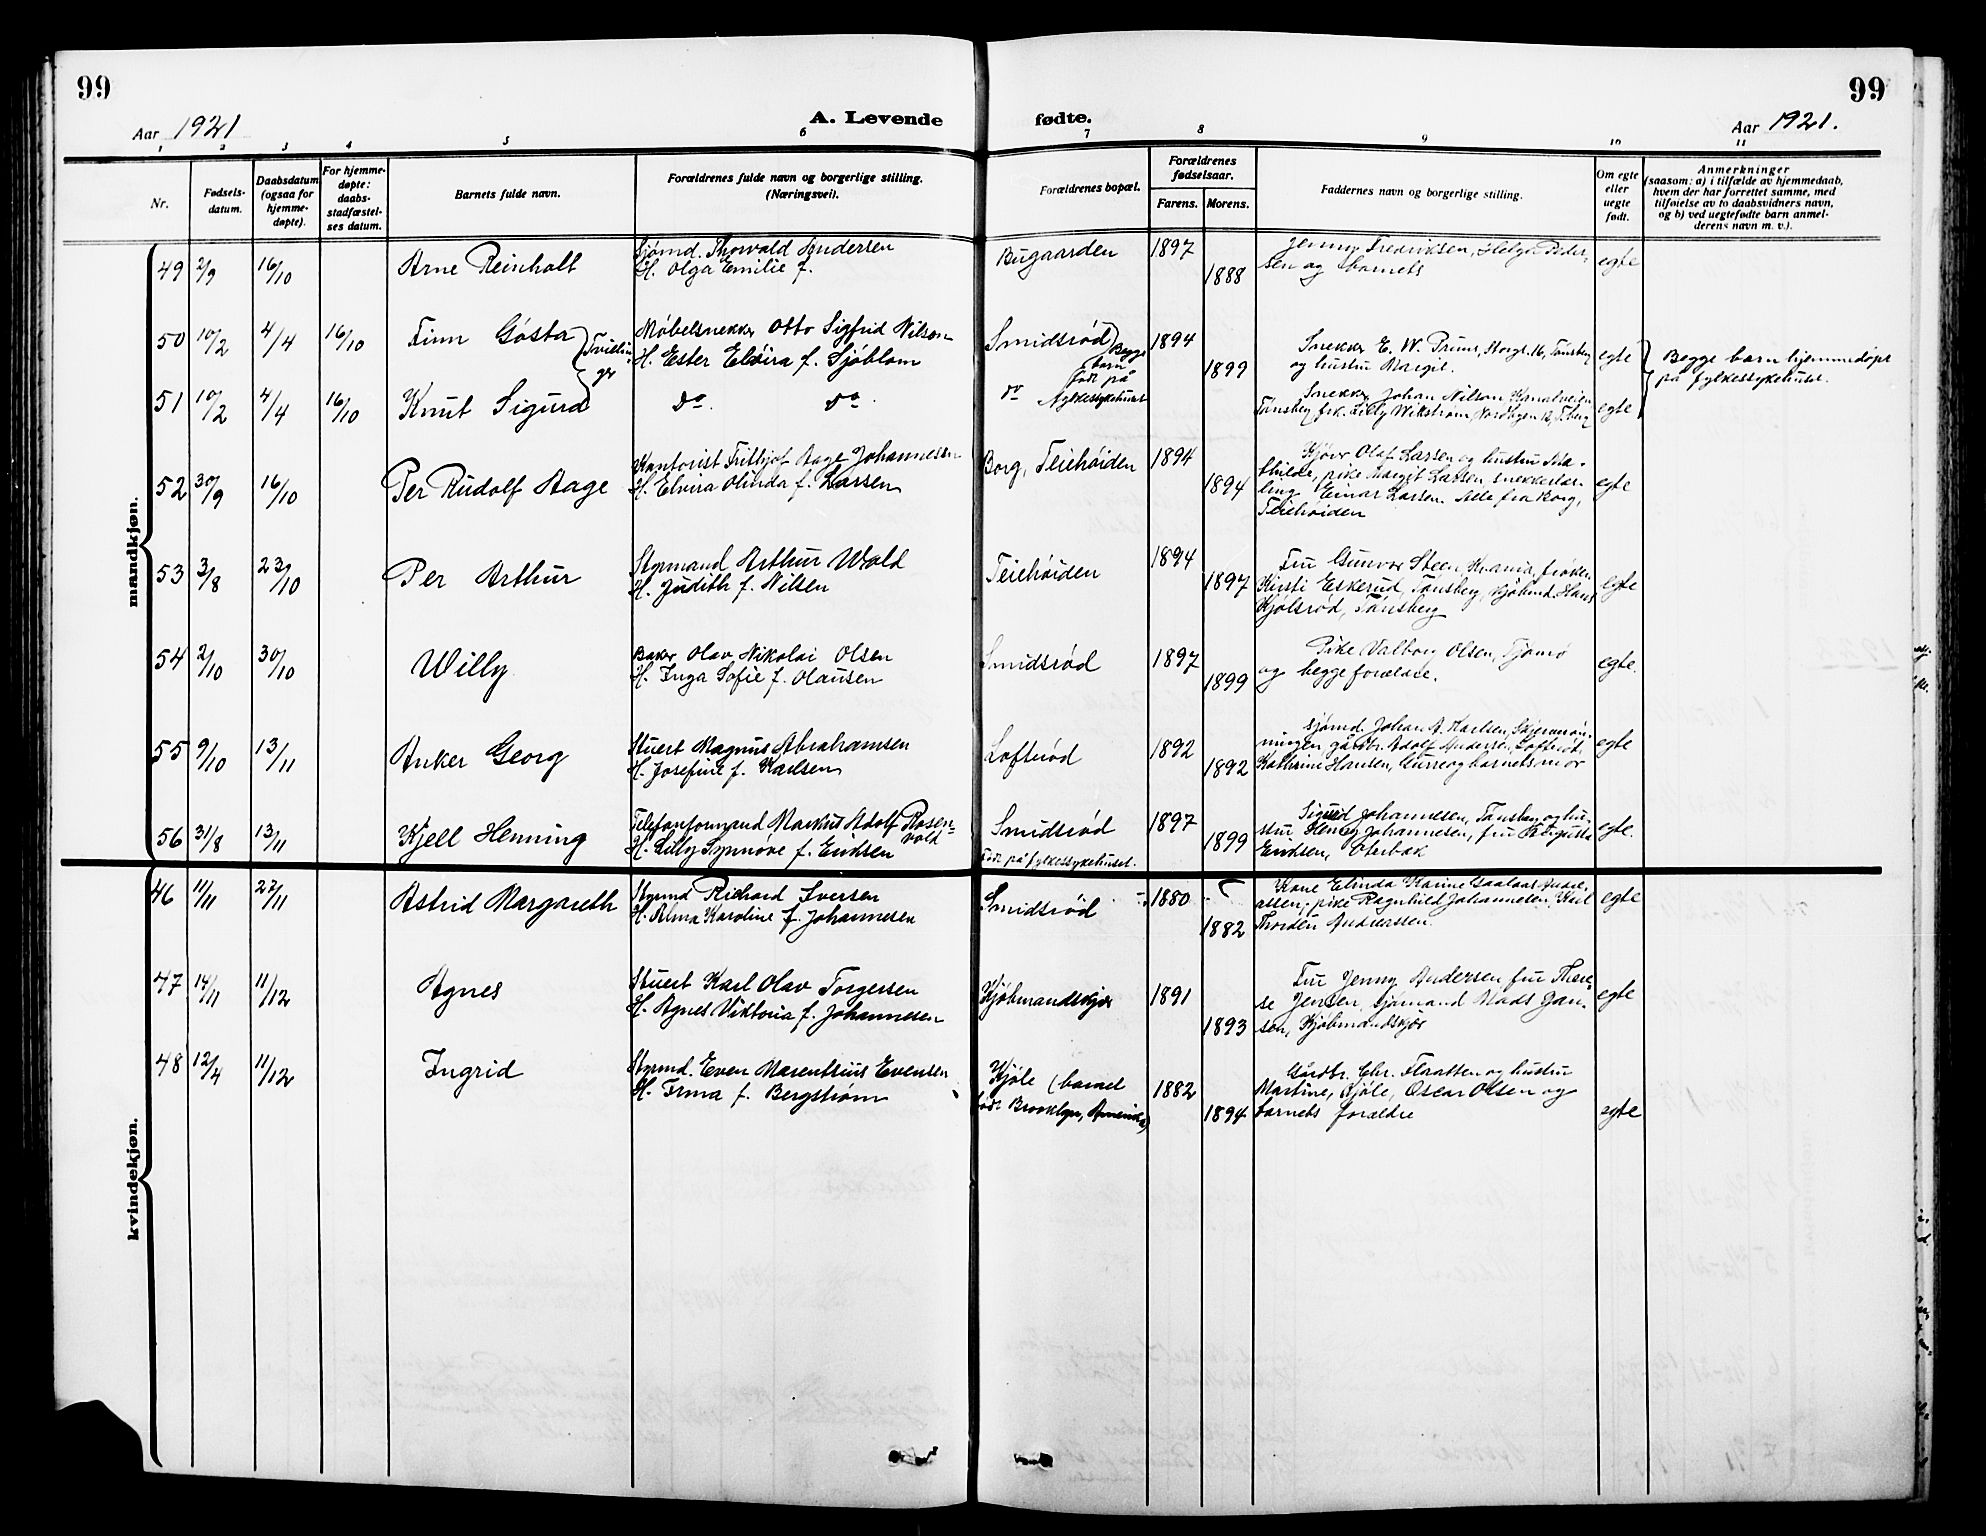 99
99
Aar 1921
A. Levende
fødte.
Aar 1921.
1 2 3 4 5 6 7 8 9 10 11
Nr.
Fødsels-
datum.
Daabsdatum
(ogsaa for
hjemme-
døpte).
For hjemme-
døpte:
daabs-
stadfæstel-
ses datum.
Barnets fulde navn.
Forældrenes fulde navn og borgerlige stilling.
(Næringsvei).
Forældrenes bopæl.
Forældrenes
fødselsaar.
Farens. Morens.
Faddernes navn og borgerlige stilling.
Om egte
eller
uegte
født.
Anmerkninger
(saasom: a) i tilfælde av hjemmedaab,
hvem der har forrettet samme, med
tilføielse av to daabsvidners navn,
og b) ved uegtefødte barn anmel-
derens navn m. v.).
mandkjøn.
49 2/9 16/10 Arne Reinholt
Sjømd. Thorvald Andersen
H. Olga Emilie f.
Bugaarden 1897 1888
Jenny Fredriksen, Helga Peder-
sen og barnets
egte
50 10/2 4/4 16/10 Finn Gösta
Tvillin-
ger
Møbelsnekker Otto Sigfrid Nilson
H. Ester Elvira f. Sjöblom
Smidsrød
Begge
barn
født på
fylkessykehuset
1894 1899
Snekker E. W. Bruns, Storgt. 16, Tønsberg
og hustru Margit.
egte
Begge barn hjemmedøpt
på fylkessykehuset.
51 10/2 4/4 16/10 Knut Sigurd
do. do
do
Snekker Johan Nilson
Tønsberg frk. Lilly Wikstrøm, Nordbyen 12, T.berg
egte
52 30/9 16/10 Per Rudolf Aage
Kontorist Frithjof Aage Johannesen
H. Elvira Olinda f. Larsen
Borg, Teiehøiden 1894 1894
Kjørr Olaf Larsen og hustru Ma-
thilde, pike Margit Larsen, snekkerlær-
ling Einar Larsen. Alle fra Borg,
Teiehøiden
egte
53 3/8 23/10 Per Arthur
Styrmand Arthur Wold
H. Judith f. Nilsen
Teiehøiden 1894 1897
Fru Gunvor Steen, Kr.ania, frøken
Kirsti Eskerud, Tønsberg, kjøbmd. Hans
Kjølsrød, Tønsberg
egte
54 2/10 30/10 Willy
Baker Olav Nikolai Olsen
H. Inga Sofie f. Olausen
Smidsrød 1897 1899
Pike Valborg Olsen, Tjømø
og begge forældre.
egte.
55 9/10 13/11 Anker Georg
Stuert Magnus Abrahamsen
H. Josefine f. Karlsen
Lofterød 1892 1892
Sjømd. Johan A. Karlsen,
gårdbr. Adolf Andersen, Lofterød,
Kathrine Hansen, og barnets mor
egte
56 31/8 13/11 Kjell Henning
Telefonformand Markus Adolf Rosen-
vold
H. Lilly Synnøve f. Eriksen
Smidsrød
Født på fylkessykehuset.
1897 1899
Sigurd Johannesen, Tønsberg og hu-
stru Henny Johannesen, fru Augusta
Eriksen, Oterbæk
egte.
kvindekjøn.
46 11/11 27/11 Astrid Margareth
Styrmd Richard Iversen
H. Alma Karoline f. Johannesen
Smidsrød 1880 1882
Kone Elinda Karine Andre-
assen, pike Ragnhild Johannesen, Karl
Thorden Andreassen.
egte
47 14/11 11/12 Agnes
Stuert Karl Olav Torgersen
H. Agnes Viktoria f. Johannesen
Kjøbmandskjær 1891 1893
Fru Jenny Andersen, fru There-
se Jensen, sjømand Mads Jan-
sen, Kjøbmandskjær
egte
48 12/4 11/12 Ingrid
Styrmd. Even Marentsius Evensen
H. Irma f. Bergstrøm
Kjøle (barnet
født Brooklyn, Amerika)
1882 1894
Gårdbr. Chr. Floratten og hustru
Martine, Kjøle, Oscar Olsen og
barnets forældre
egte